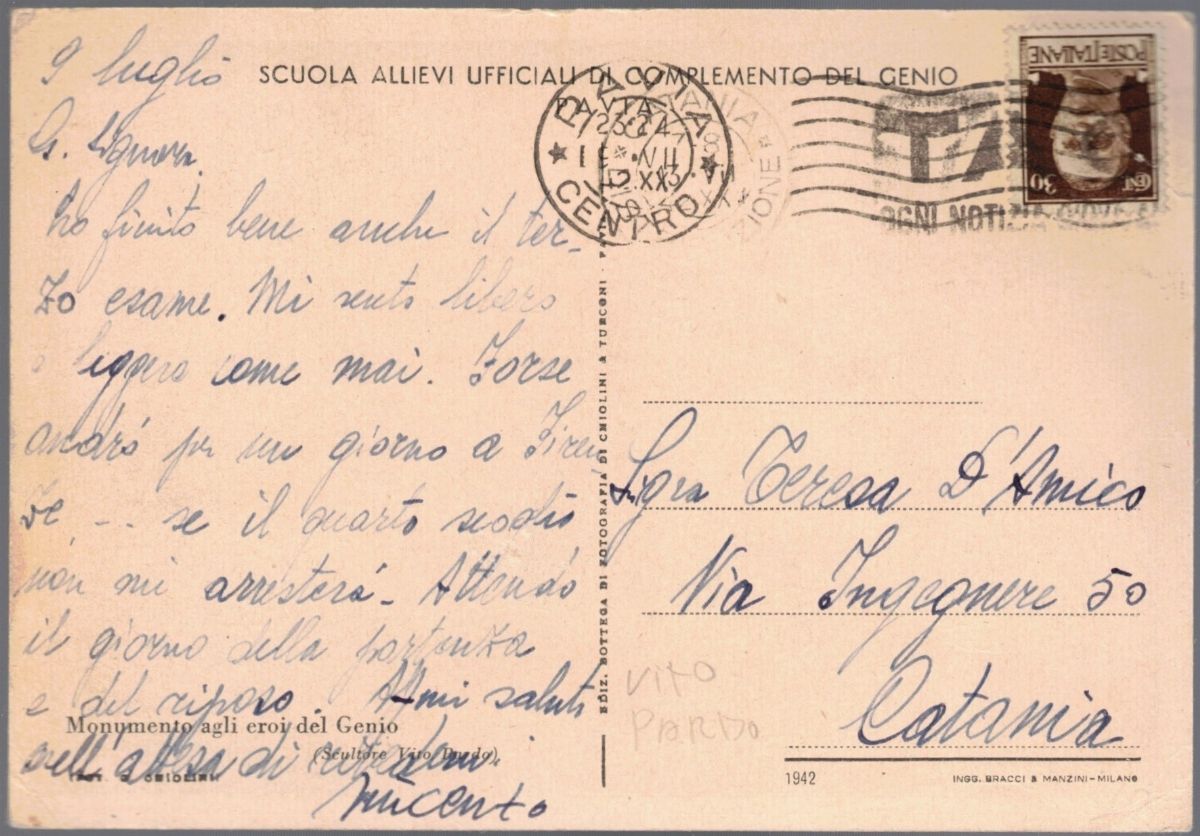 9 luglio
G. Signora,
ho finito bene anche il ter-
zo esame. Mi sento libero
e leggero come mai. Forse
andrò per un giorno a Firen
ze ... se il quarto scoglio
non mi arresterà - Attendo
il giorno della partenza
e del riposo. saluti
nell'attesa di
SCUOLA ALLIEVI UFFICIALI DI COMPLEMENTO DEL GENIO
PAVIA
PAVIA
CENTRO
OGNI NOTIZI
POSTE ITALIANE
CENT 30
EDIZ. BOTTEGA DI FOTOGRAFIA DI CHIOLINI & TURCONI - PAVIA
Sigra Teresa D'Amico
Via Ingegnere 50
Catania
VITO
PARDO
Monumento agli eroi del Genio
(Scultore Vito Pardo)
1942
INGG. BRACCI & MANZINI-MILANO